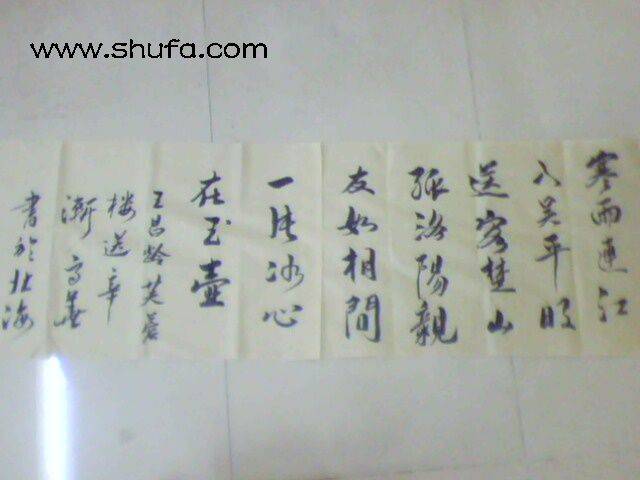 www.shufa.com
寒雨連江
入吴平明
送客楚山
孤洛陽親
友如相問
一片冰心
在玉壺
王昌齡芙蓉
楼送辛
漸高
書於北海